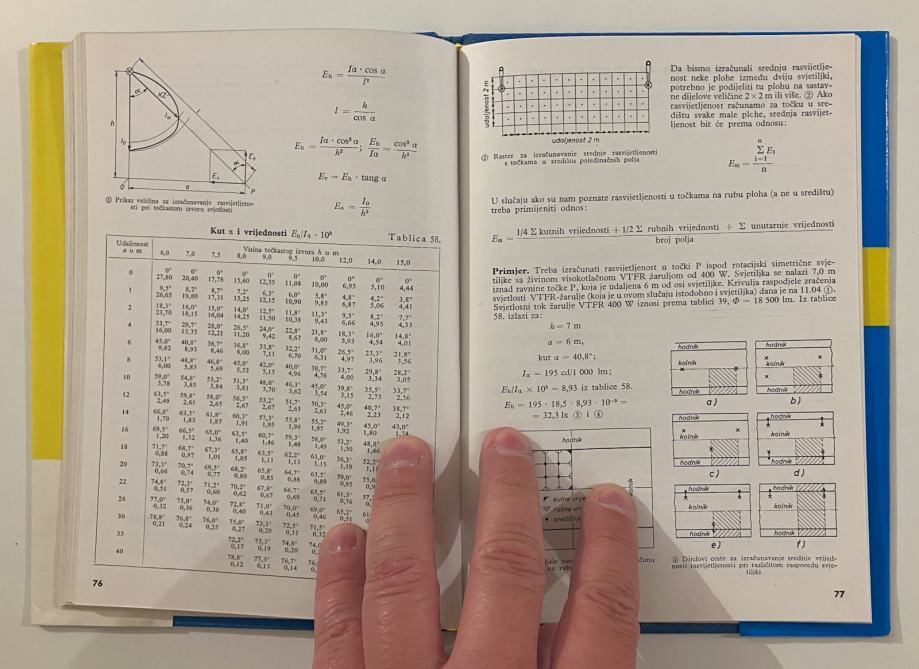 E_h = Ia · cos α / l²
l = h / cos α
E_h = Ia · cos³ α / h² ; E_h / Ia = cos³ α / h²
E_v = E_h · tang α
E_o = I_o / h²
① Prikaz veličina za izračunavanje rasvijetljeno-
sti pri točkastom izvoru svjetlosti
Kut α i vrijednosti E_h/I_α · 10³
Tablica 58.
Udaljenost a u m
Visina točkastog izvora h u m
6,0 7,0 7,5 8,0 9,0 9,5 10,0 12,0 14,0 15,0
0 0° 0° 0° 0° 0° 0° 0° 0° 0° 0°
27,80 20,40 17,78 15,60 12,35 11,08 10,00 6,95 5,10 4,44
1 9,5° 8,2° 8,7° 7,2° 6,3° 6,0° 5,8° 4,8° 4,2° 3,8°
26,65 19,80 17,31 15,25 12,15 10,90 9,85 6,87 5,06 4,41
2 18,3° 16,0° 15,0° 14,0° 12,5° 11,8° 11,3° 9,5° 8,2° 7,7°
23,70 18,15 16,04 14,25 11,50 10,38 9,43 6,66 4,95 4,33
4 33,7° 29,7° 28,0° 26,5° 24,0° 22,8° 21,8° 18,3° 16,0° 14,8°
16,00 13,35 12,21 11,20 9,42 8,67 8,00 5,93 4,54 4,01
6 45,0° 40,8° 38,7° 36,8° 33,8° 32,2° 31,0° 26,5° 23,3° 21,8°
9,82 8,93 8,46 8,00 7,11 6,70 6,31 4,97 3,96 3,56
8 53,1° 48,8° 46,8° 45,0° 42,0° 40,0° 38,7° 33,7° 29,8° 28,2°
6,00 5,83 5,69 5,52 5,15 4,96 4,76 4,00 3,34 3,05
10 59,0° 54,8° 53,2° 51,3° 48,0° 46,3° 45,0° 39,8° 35,5° 33,7°
3,78 3,85 3,84 3,81 3,70 3,62 3,54 3,15 2,75 2,56
12 63,5° 59,8° 58,0° 56,3° 53,2° 51,7° 50,3° 45,0° 40,7° 38,7°
2,49 2,61 2,65 2,67 2,67 2,65 2,63 2,46 2,23 2,12
14 66,8° 63,5° 61,8° 60,3° 57,3° 55,8° 55,2° 49,3° 45,0° 43,0°
1,70 1,83 1,87 1,91 1,95 1,96 1,97 1,92 1,80 1,74
16 69,5° 66,5° 65,0° 63,5° 60,7° 59,3° 58,0° 53,2° 48,8°
1,20 1,32 1,36 1,40 1,46 1,48 1,49 1,50 1,46
18 71,7° 68,7° 67,3° 65,8° 63,5° 62,2° 61,0° 56,3° 52,2°
0,88 0,97 1,01 1,05 1,11 1,13 1,15 1,19
20 73,3° 70,7° 69,5° 68,2° 65,8° 64,7° 63,5° 59,0°
0,66 0,74 0,77 0,80 0,85 0,88 0,89 0,95
22 74,8° 72,3° 71,2° 70,2° 67,8° 66,7° 65,5° 61,3°
0,51 0,57 0,60 0,62 0,67 0,69 0,71 0,76
26 77,0° 75,0° 74,0° 72,8° 71,0° 70,0° 69,0° 65,2°
0,32 0,36 0,38 0,40 0,43 0,45 0,46
30 78,8° 76,8° 76,0° 75,0° 73,3° 72,5° 71,5°
0,21 0,24 0,25 0,27 0,29 0,31
35 72,2° 75,3° 74,8°
0,17 0,19 0,20
40 78,8° 77,3° 76,7°
0,12 0,13 0,14
76
udaljenost 2 m
udaljenost 2 m
② Raster za izračunavanje srednje rasvijetljenosti
s točkama u središtu pojedinačnih polja
Da bismo izračunali srednju rasvijetlje-
nost neke plohe između dviju svjetiljki,
potrebno je podijeliti tu plohu na sastav-
ne dijelove veličine 2 × 2 m ili više. ② Ako
rasvijetljenost računamo za točku u sre-
dištu svake male plohe, srednja rasvijet-
ljenost bit će prema odnosu:
E_m = n Σ E_i i=1 / n
U slučaju ako su nam poznate rasvijetljenosti u točkama na rubu ploha (a ne u središtu)
treba primijeniti odnos:
E_m = 1/4 Σ kutnih vrijednosti + 1/2 Σ rubnih vrijednosti + Σ unutarnie vrijednosti / broj polja
Primjer. Treba izračunati rasvijetljenost u točki P ispod rotacijski simetrične svje-
tiljke sa živinom visokotlačnom VTFR žaruljom od 400 W. Svjetiljka se nalazi 7,0 m
iznad ravnine točke P, koja je udaljena 6 m od osi svjetiljke. Krivulja raspodjele zračenja
svjetlosti VTFR-žarulje (koja je u ovom slučaju istodobno i svjetiljka) dana je na 11.04 ①.
Svjetlosni tok žarulje VTFR 400 W iznosi prema tablici 39, Φ = 18 500 lm. Iz tablice
58. izlazi za:
h = 7 m
a = 6 m,
kut α = 40,8°;
I_α = 195 cd/1 000 lm;
E_h/I_α × 10³ = 8,93 iz tablice 58.
E_h = 195 · 18,5 · 8,93 · 10⁻³ =
= 32,3 lx ③ i ④
hodnik
kutne
rubne
hodnik
kolnik
a)
hodnik
kolnik
hodnik
b)
hodnik
kolnik
c)
hodnik
kolnik
hodnik
d)
hodnik
kolnik
hodnik
e)
hodnik
kolnik
hodnik
f)
④ Dijelovi ceste za izračunavanje srednje vrijed-
nosti rasvijetljenosti pri različitom rasporedu svje-
tiljki
77